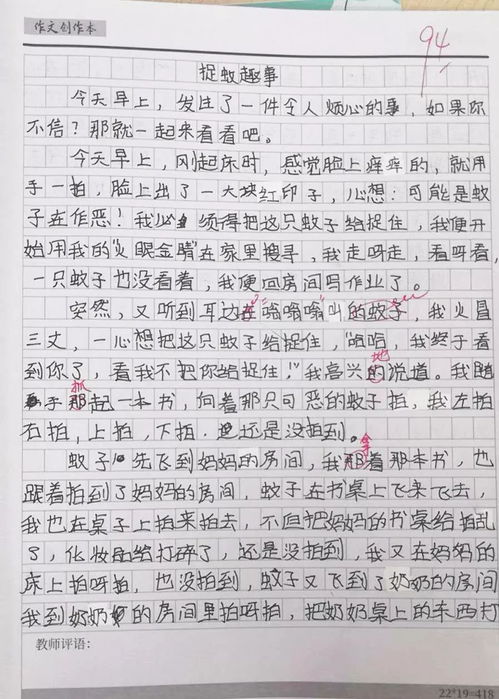 作文创作本
94
捉蚊趣事
今天早上，发生了一件令人烦心的事，如果你
不信？那就一起来看看吧。
今天早上，刚起床时，感觉脸上痒痒的，就用
手一拍，脸上出了一大块红印子，心想：可能是蚊
子在作恶！我必须得把这只蚊子给捉住，我便开
始用我的"火眼金睛"在家里搜寻，我走呀走，看呀看，
一只蚊子也没看着，我便回房间写作业了。
突然，又听到耳边在"嗡嗡嗡"叫的蚊子，我火冒
三丈，一心想把这只蚊子给捉住，"哈哈，我终于看
到你了，看我不把你给捉住！"我高兴的说道。我随
地
手那起一本书，向着那只可恶的蚊子拍，我左拍
抓
右拍，上拍，下拍，还是没拍到。
蚊子先飞到妈妈的房间，我那着那本书，也
拿
跟着拍到了妈妈的房间，蚊子在书桌上飞来飞去，
我也在桌子上拍来拍去，不但把妈妈的书桌给拍乱
了，化妆品给打碎了，还是没拍到，我又在妈妈的
床上拍呀拍，也没拍到，蚊子又飞到了奶奶的房间
我到奶奶的房间里拍呀拍，把奶奶桌上的东西打
教师评语：
22*19=418